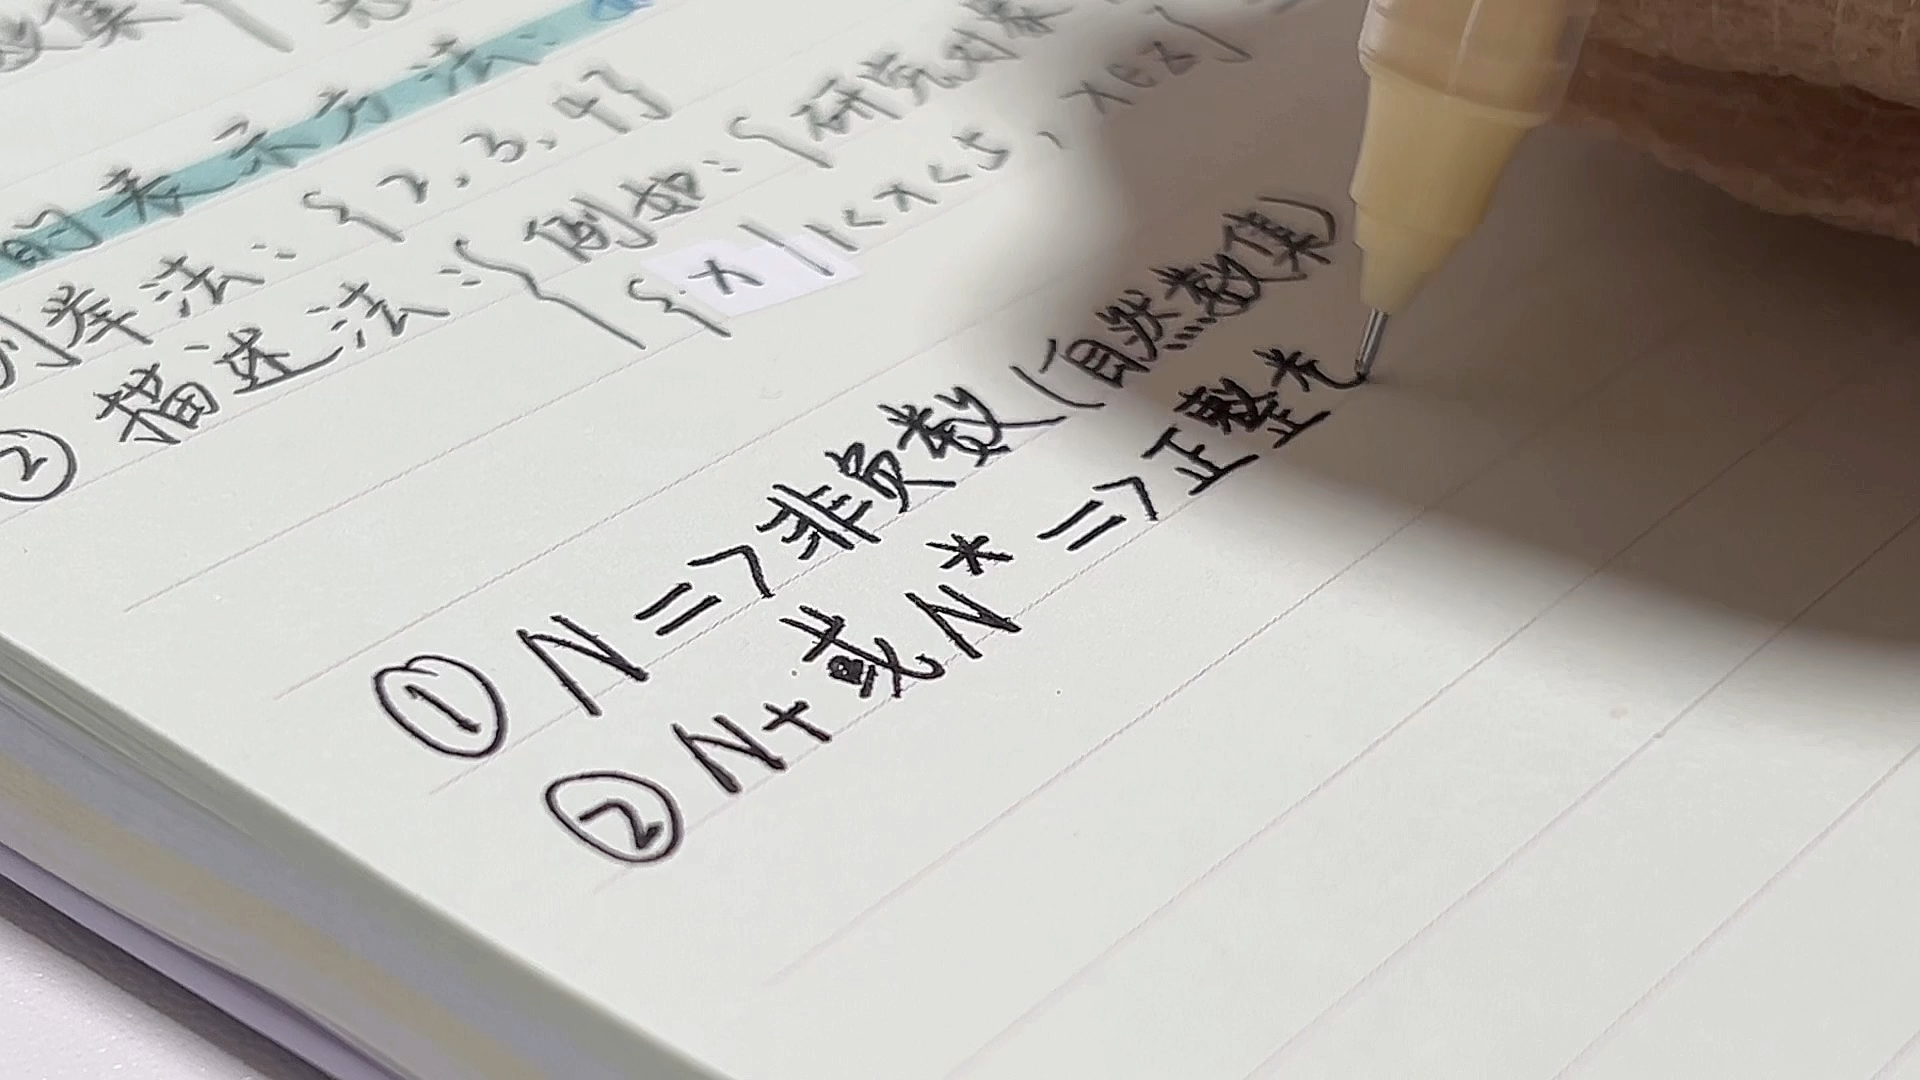 数集
的表示方法:
列举法:{2,3,4}
② 描述法:{例如:{研究对象
{x|1<x<5,x∈Z}
① N=>非负数(自然数集)
② N+或N*=>正整